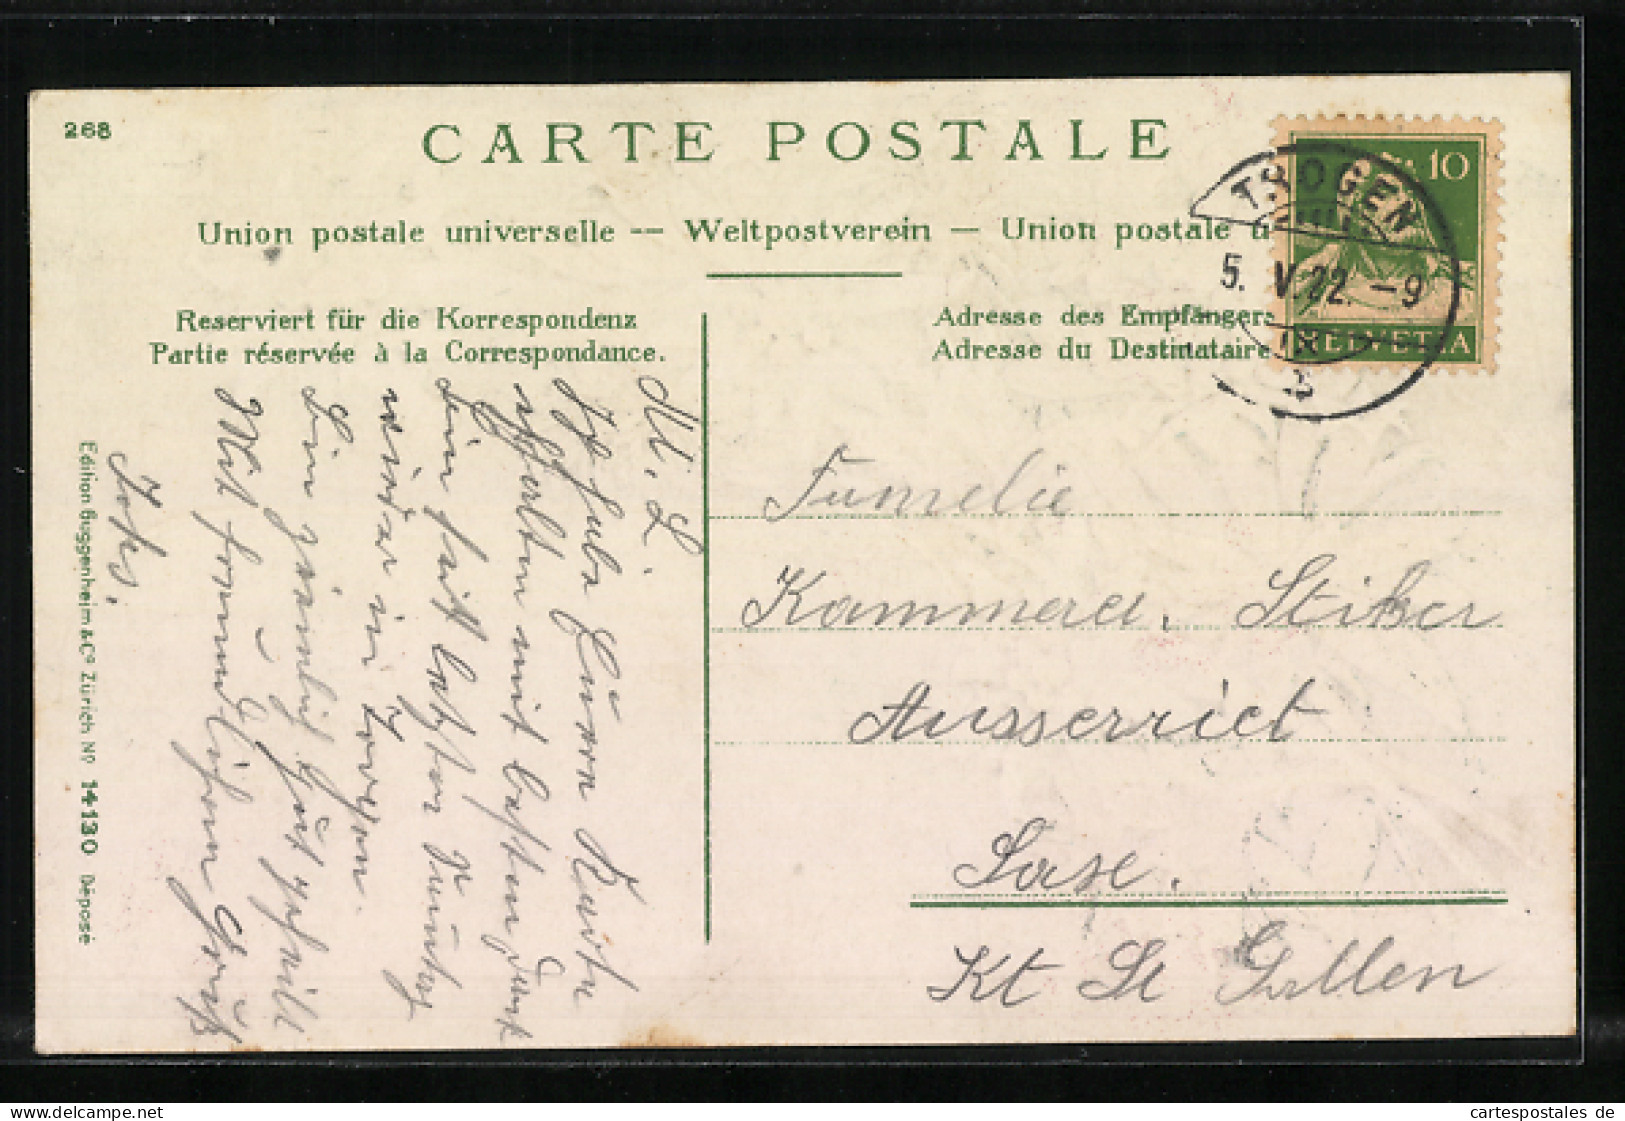 268
CARTE POSTALE
Union postale universelle -- Weltpostverein — Union postale u
Reserviert für die Korrespondenz
Partie réservée à la Correspondance.
Adresse des Empfängers
Adresse du Destinataire
10
HELVETIA
TROGEN
5. V. 22. -9
M. L.
Ich habe Euere Karte
erhalten mit bestem Dank
bin seit letzten Sonntag
wieder in Trogen.
Bin ziemlich gut
Mit freundlichem Gruß
Familie
Kammerer. Stiker
Ausserriet
Saxe.
Kt St Gallen
Edition Guggenheim & Co Zürich No 14130 Déposé
www.delcampe.net
cartespostales de